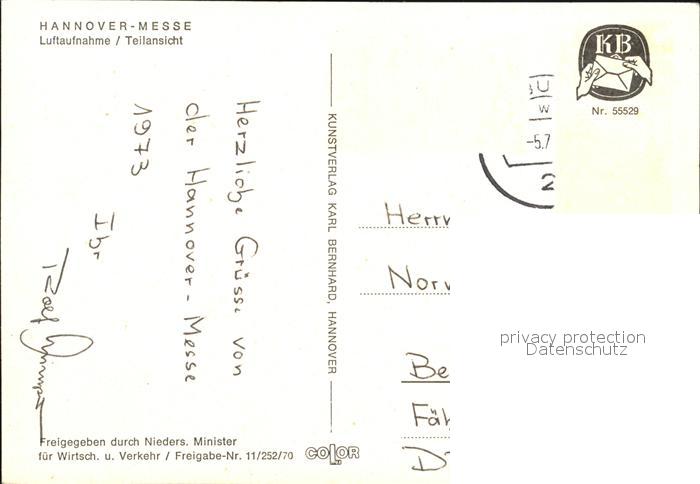 HANNOVER-MESSE
Luftaufnahme / Teilansicht
Herzliche Grüsse von
der Hannover-Messe
1973
Ihr
Rolf
Freigegeben durch Nieders. Minister
für Wirtsch. u. Verkehr / Freigabe-Nr. 11/252/70
COLOR
KUNSTVERLAG KARL BERNHARD, HANNOVER
KB
Nr. 55529
-5.7
2
Herrn
Norw
Be
Fäh
D
privacy protection
Datenschutz